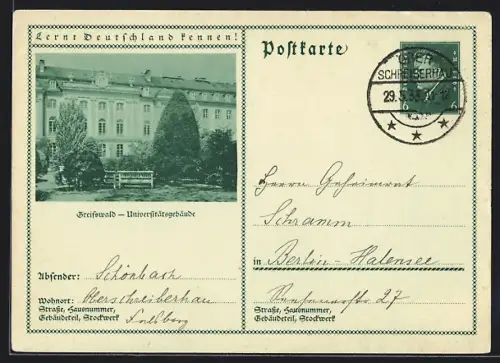 Lernt Deutschland kennen!
Greifswald — Universitätsgebäude
Absender: Schönbach
Wohnort: Oberschreiberhau
Straße, Hausnummer,
Gebäudeteil, Stockwerk
Postkarte
OBER
SCHREIBERHAU
29.
Herrn Geheimrat
Schramm
in Berlin-Halensee
27
Straße, Hausnummer,
Gebäudeteil, Stockwerk